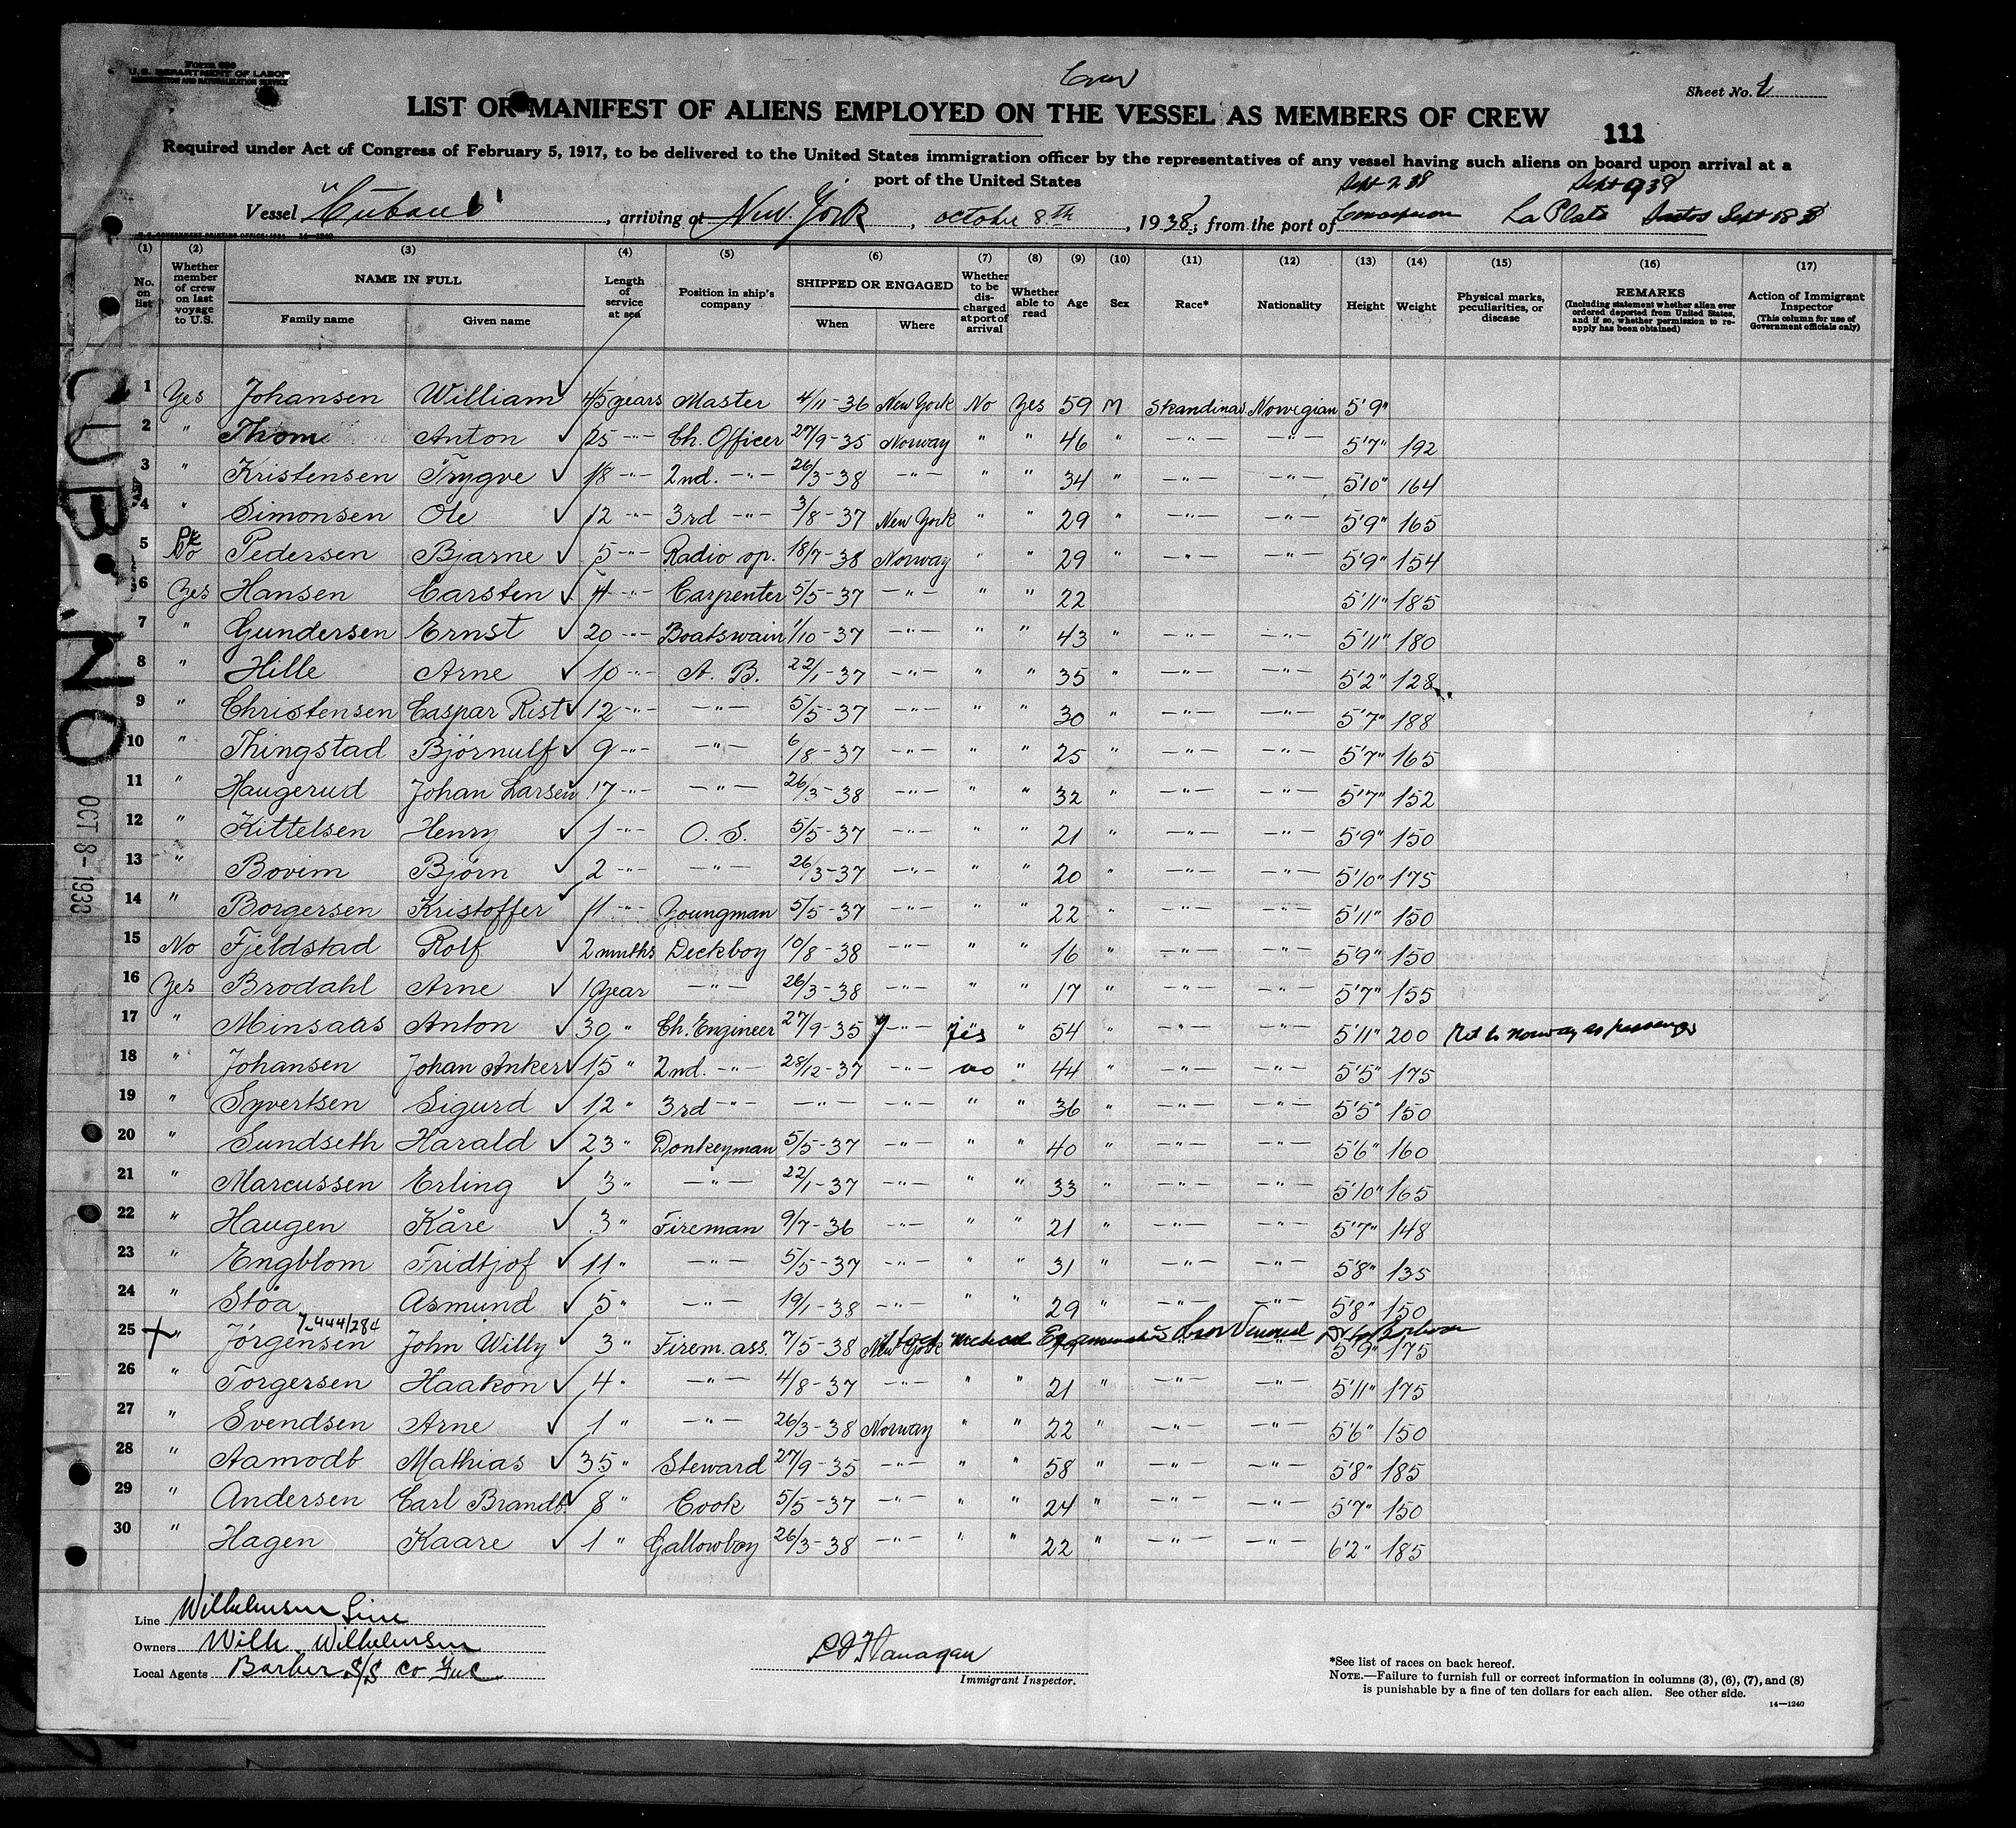 Form 680
U. S. DEPARTMENT OF LABOR
IMMIGRATION AND NATURALIZATION SERVICE
Crew
Sheet No. 1
LIST OR MANIFEST OF ALIENS EMPLOYED ON THE VESSEL AS MEMBERS OF CREW
111
Required under Act of Congress of February 5, 1917, to be delivered to the United States immigration officer by the representatives of any vessel having such aliens on board upon arrival at a
port of the United States
Sept 2 38 Sept 9 38
Vessel "Cubano", arriving at New York, october 8th, 1938, from the port of Concepcion La Plata Santos Sept 18 38
U. S. GOVERNMENT PRINTING OFFICE: 1934 14-1240
(1) (2) (3) (4) (5) (6) (7) (8) (9) (10) (11) (12) (13) (14) (15) (16) (17)
No. on list Whether member of crew on last voyage to U.S. NAME IN FULL Family name Given name Length of service at sea Position in ship's company SHIPPED OR ENGAGED When Where Whether to be discharged at port of arrival Whether able to read Age Sex Race* Nationality Height Weight Physical marks, peculiarities, or disease REMARKS (Including statement whether alien ever ordered deported from United States, and if so, whether permission to re-apply has been obtained) Action of Immigrant Inspector (This column for use of Government officials only)
1 Yes Johansen William 45 years Master 4/11-36 New York No Yes 59 M Skandinav. Norwegian 5'9"
2 " Thom Anton 25 -"- Ch. Officer 27/9-35 Norway " " 46 " -"- -"- 5'7" 192
3 " Kristensen Trygve 18 -"- 2nd. -"- 26/3-38 -"- " " 34 " -"- -"- 5'10" 164
4 " Simonsen Ole 12 -"- 3rd -"- 3/8-37 New York " " 29 " -"- -"- 5'9" 165
5 No Pedersen Bjarne 5 -"- Radio op. 18/7-38 Norway " " 29 " -"- -"- 5'9" 154
6 Yes Hansen Carsten 4 -"- Carpenter 5/5-37 -"- " " 22 5'11" 185
7 " Gundersen Ernst 20 -"- Boatswain 1/10-37 -"- " " 43 " -"- -"- 5'11" 180
8 " Hille Arne 10 -"- A. B. 22/1-37 -"- " " 35 " -"- -"- 5'2" 128
9 " Christensen Caspar Rist 12 -"- -"- 5/5-37 -"- " " 30 " -"- -"- 5'7" 188
10 " Thingstad Bjørnulf 9 -"- -"- 6/8-37 -"- " " 25 " -"- -"- 5'7" 165
11 " Haugerud Johan Larsen 17 -"- -"- 26/3-38 -"- " " 32 " -"- -"- 5'7" 152
12 " Kittelsen Henry 1 -"- O. S. 5/5-37 -"- " " 21 " -"- -"- 5'9" 150
13 " Bovim Bjørn 2 -"- -"- 26/3-37 -"- " " 20 " -"- -"- 5'10" 175
14 " Borgersen Kristoffer 4 -"- Youngman 5/5-37 -"- " " 22 " -"- -"- 5'11" 150
15 No Fjeldstad Rolf 2 months Deckboy 10/8-38 -"- " " 16 " -"- -"- 5'9" 150
16 Yes Brodahl Arne 1 year -"- 26/3-38 -"- " " 17 " -"- -"- 5'7" 155
17 " Minsaas Anton 30 " Ch. Engineer 27/9-35 -"- yes " 54 " -"- -"- 5'11" 200 Ret to Norway as passenger
18 " Johansen Johan Anker 15 " 2nd. -"- 28/12-37 -"- no " 44 " -"- -"- 5'5" 175
19 " Syvertsen Sigurd 12 " 3rd -"- -"- -"- " " 36 " -"- -"- 5'5" 150
20 " Sundseth Harald 23 " Donkeyman 5/5-37 -"- " " 40 -"- -"- 5'6" 160
21 " Marcussen Erling 3 " -"- 22/1-37 -"- " " 33 " -"- -"- 5'10" 165
22 " Haugen Kåre 3 " Fireman 9/7-36 -"- " " 21 " -"- -"- 5'7" 148
23 " Engblom Fridtjof 11 " -"- 5/5-37 -"- " " 31 " -"- -"- 5'8" 135
24 " Støa Asmund 5 " -"- 19/1-38 -"- " " 29 " -"- -"- 5'8" 150
7-444/284
25 " Jørgensen John Willy 3 " Firem. ass. 7/5-38 New York Medical Examination 5'9" 175
26 " Torgersen Haakon 4 " -"- 4/8-37 -"- " " 21 " -"- -"- 5'11" 175
27 " Svendsen Arne 1 " -"- 26/3-38 Norway " " 22 " -"- 5'6" 150
28 " Aamodt Mathias 35 " Steward 27/9-35 -"- " " 58 " -"- -"- 5'8" 185
29 " Andersen Carl Brandt. 8 " Cook 5/5-37 -"- " " 24 " -"- -"- 5'7" 150
30 " Hagen Kaare 1 " Gallowboy 26/3-38 -"- " " 22 " -"- -"- 6'2" 185
CUBANO
OCT 8-1938
Line Wilhelmsen Line
Owners Wilh. Wilhelmsen
Local Agents Barber S/S Co Inc
Flanagan
Immigrant Inspector.
*See list of races on back hereof.
NOTE.—Failure to furnish full or correct information in columns (3), (6), (7), and (8)
is punishable by a fine of ten dollars for each alien. See other side.
14—1240